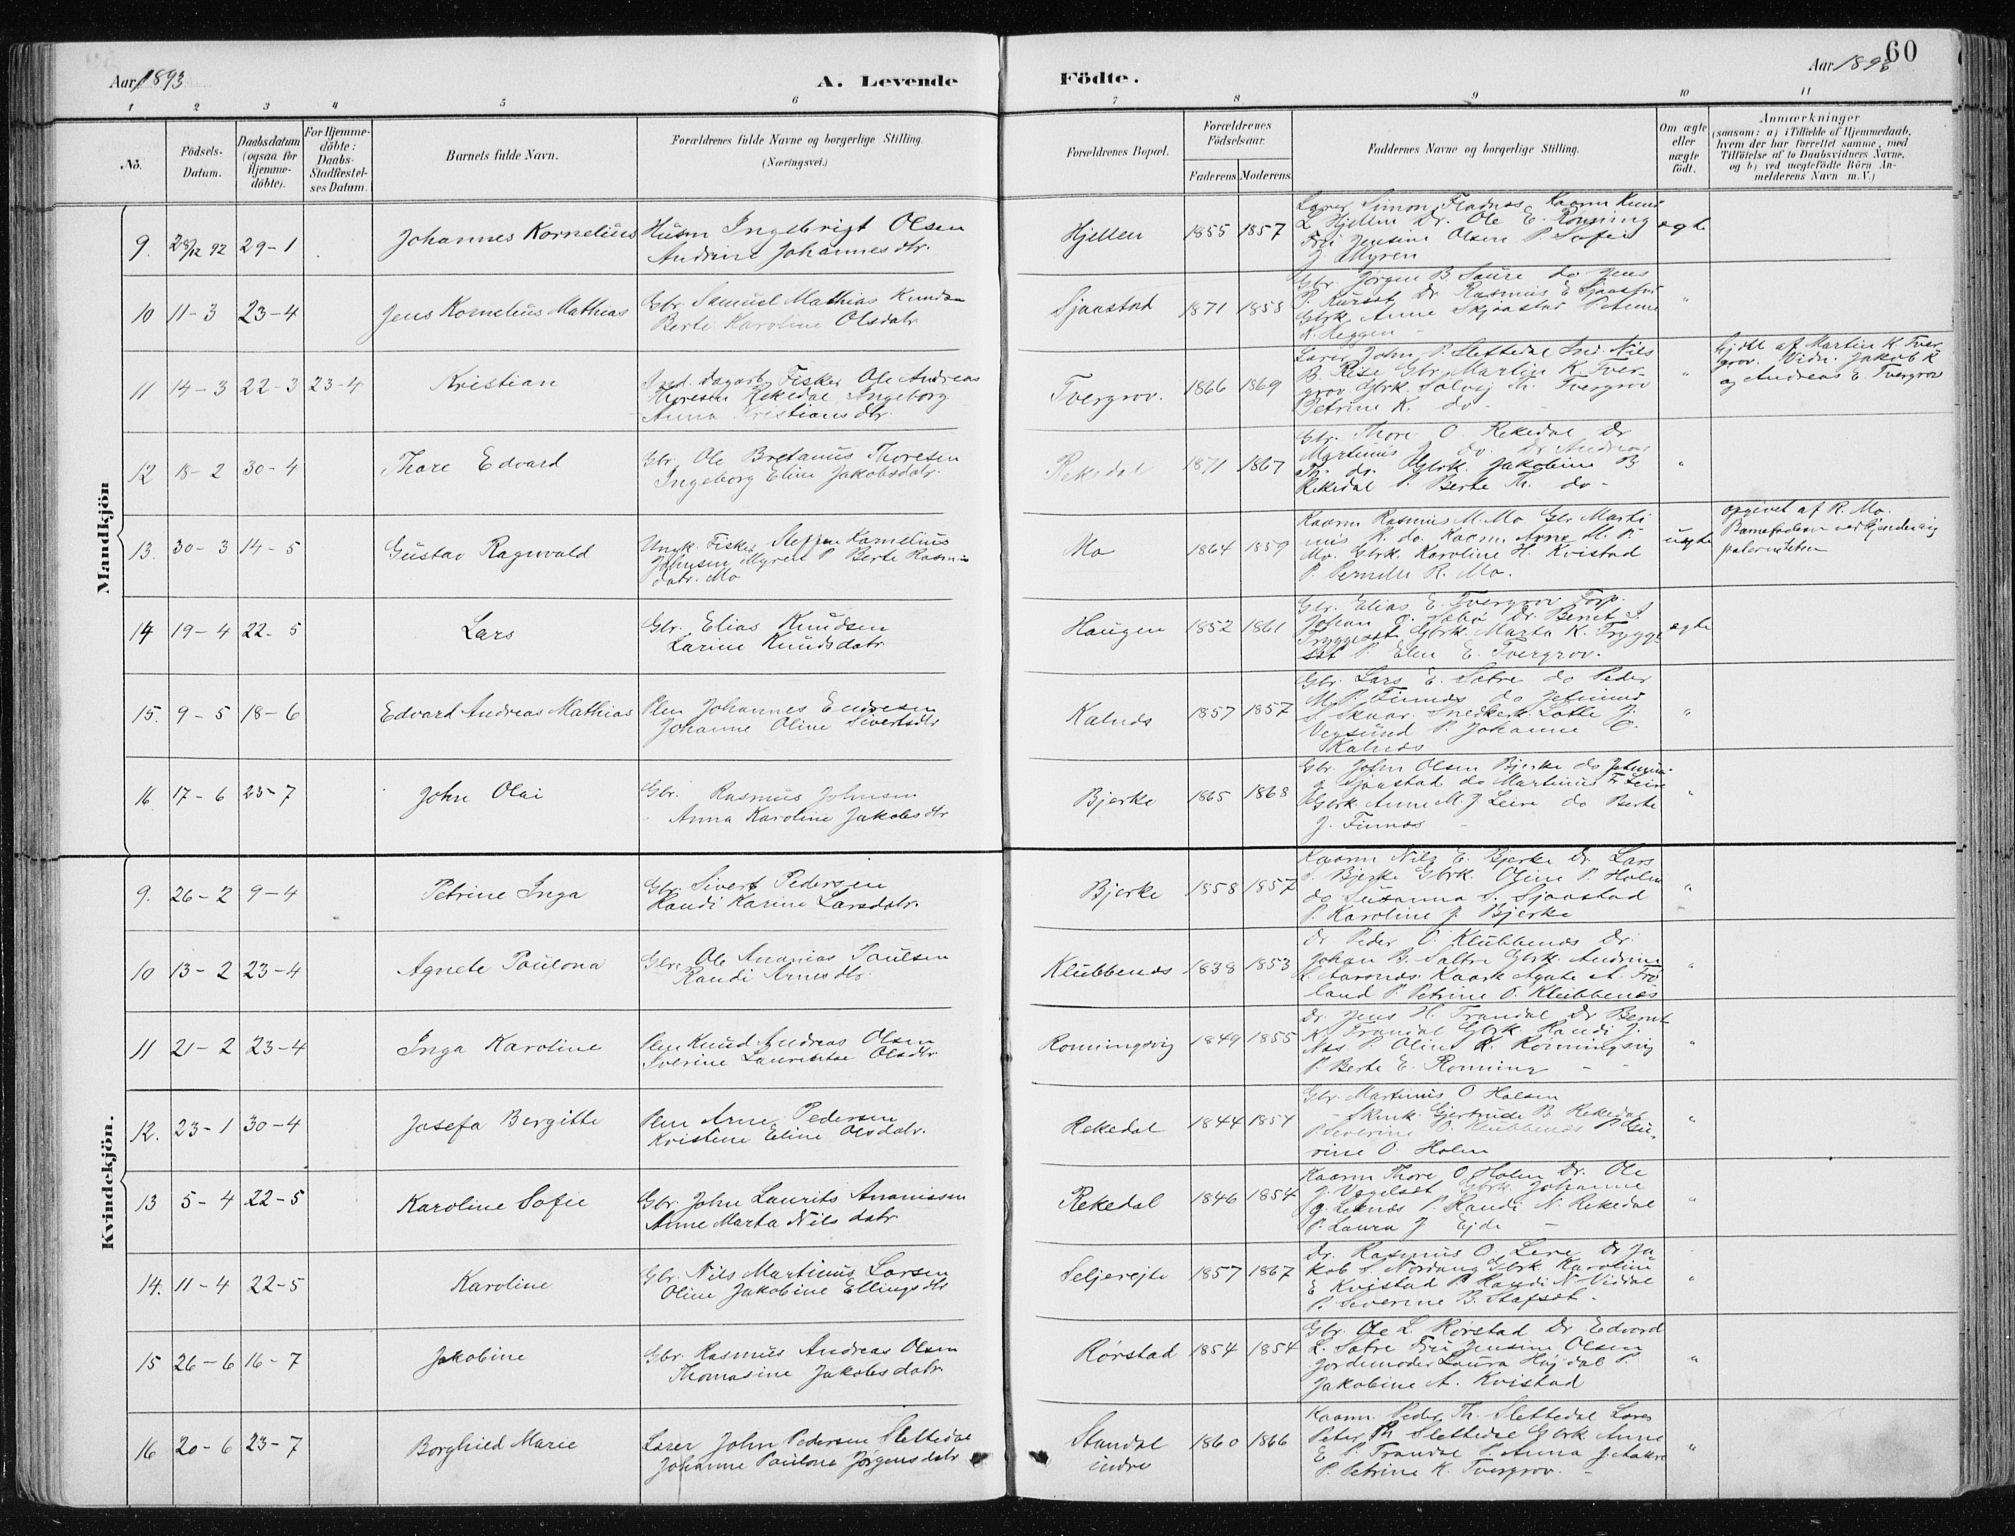 60
Aar 1893
A. Levende
Födte.
Aar 1893
1 2 3 4 5 6 7 8 9 10 11
No.
Födsels-Datum.
Daabsdatum (ogsaa for Hjemme-döbte).
For Hjemme-döbte: Daabs-Stadfæstel-ses Datum.
Barnets fulde Navn.
Forældrenes fulde Navne og borgerlige Stilling. (Næringsvei.)
Forældrenes Bopæl.
Forældrenes Födselsaar.
Faderens. Moderens.
Faddernes Navne og borgerlige Stilling.
Om ægte eller uægte födt.
Anmærkninger
(saasom: a) i Tilfælde af Hjemmedaab, hvem der har forrettet samme, med Tilföielse af to Daabsvidners Navne, og b) ved uægtefödte Börn An-melderens Navn m. V.)
Mandkjön
9. 28/12 92 29-1 Johannes Kornelius
Husm Ingebrigt Olsen
Andrine Johannesdtr.
Hjellen 1855 1857
Lærer Simon Fladnes
L Hjellen Dr. Ole E. Rønning
Frú Jensine Olsen P. Sofie
J Myren
ægte
10 11-3 23-4 Jens Kornelius Mathias
Gbr. Samuel Mathias Knudsen
Berte Karoline Olsdatr.
Sjaastad 1871 1858
Gbr Jørgen B Saure do Jens
P. Dr. Rasmus E Sjaastad
Gbrk Anne Skjaastad P Anne
K. Heggen
"
11 14-3 22-3 23-4 Kristian
Ole Andreas
Thoresen Rekedal Ingeborg
Anna Kristiansdtr.
Tvergrov. 1866 1869
Lærer John P. Slettedal Nils
B. Rise Gbr Martin K Tver-
grov Gbrk. Solvej Tvergrov
Petrine K. do
"
hjdbt af Martin K Tver-
grov. Vidn. Jakob K
og Andreas E. Tvergrov
12 18-2 30-4 Thore Edvard
Gbr. Ole Bretanus Thoresen
Ingeborg Eline Jakobsdatr.
Rekedal 1871 1867
Gbr. Thore O. Rekedal Dr
Martinus J do. Dr Andreas
Th. do. Gbrk. Jakobine B
Rekedal P. Berte Th. do-
"
13. 30-3 14-5 Gustav Ragnvald
Ungk. Fisker Steffen Kornelius
Johnsen Myren P Berte Rasmus-
datr. Mo
Mo 1864 1859
Kaarm Rasmus M. Mo Gbr Marti
nus R. do Kaarm Arne M. P.
Mo. Gbrk. Karoline H. Kvistad
P. Pernille R. Mo.
uægte
opgivet af R. Mo.
Barnefaderen vedkjender sig
paterniteten
14 19-4 22-5 Lars
Gbr. Elias Knudsen
Larine Knudsdatr.
Haugen 1852 1861
Gbr. Elias E. Tvergrov Forp.
Johan Dr. Bernt J.
Tryggeset Gbrk. Marta K. Trygge-
set P. Elen E. Tvergrov.
ægte
15. 9-5 18-6 Edvard Andreas Mathias
Plm Johannes Endresen
Johanne Oline Sivertsdtr
Kalnæs 1857 1857
Gbr. Lars E. Sætre do Peder
M. P. Finnes do Jetmund
S. Skaar. Snedkerk. Lotte J.
Vegsund P. Johanne E.
Kalnæs
"
16. 17-6 23-7 John Olai
Gbr. Rasmus Johnsen
Anna Karoline Jakobsdtr
Bjerke 1865 1868
Gbr. John Olsen Bjerke do Jetmund
J Sjaastad do Martinus F. Leire
Gbrk Anne M. J Leire do Berte
J. Finnes
"
Kvindekjön.
9. 26-2 9-4 Petrine Inga
Gbr. Sivert Pedersen
Randi Karine Larsdatr.
Bjerke 1858 1857
Kaarm Nils E. Bjerke Dr. Lars
S. Bjerke Gbrk. Oline P Holm
do Susanna S. Sjaastad
P. Karoline J. Bjerke
"
10 13-2 23-4 Agnete Paulona
Gbr. Ole Ananias Paulsen
Randi Arnesdtr.
Klubbenæs 1838 1853
Dr Peder O. Klubbenæs Dr.
Johan B. Sætre Gbrk Andrine
L. Aarsnæs. Kaark Agate A. Frø
land P. Petrine O. Klubbenæs
"
11 21-2 23-4 Inga Karoline
Plm Knud Andreas Olsen
Iverine Laurentse Olsdtr
Rønningsvig 1849 1855
Dr. Jens H. Trandal Dr Bernt
K. Trandal Gbrk Randi J.
Næs P. Oline K. Rønningsvig
P. Berte E. Rønning
"
12. 23-1 30-4 Josefa Bergitte
Plm Arne Pedersen
Kristine Eline Olsdatr.
Rekedal 1844 1854
Gbr. Martinus O Holsen
Gjertrude B Rekedal
P Severine O. Klubbenæs P Se-
rine O. Holen
"
13 5-4 22-5 Karoline Sofie
Gbr. John Laurits Ananiasen
Anne Marta Nilsdatr.
Rekedal 1846 1854
Kaarm Thore O Holen Dr. Ole
J. Vogelset Gbrk. Johanne
J. Leknæs P. Randi N. Rekedal
P. Laura J Ejde
"
14. 11-4 22-5 Karoline
Gbr. Nils Martinus Larsen
Oline Jakobine Ellingsdtr
Seljerejte 1857 1867
Dr. Rasmus O. Leve Dr Ja
kob S Nordang Gbrk Karoline
E Kvistad P. Randi N Viddal
P. Severine B. Stafset.
"
15 26-6 16-7 Jakobine
Gbr. Rasmus Andreas Olsen
Thomasine Jakobsdatr.
Rørstad 1854 1854
Gbr. Ole L. Rørstad Dr Edvard
L. Sætre Frú Jensine Olsen
Jordemoder Laura Højdal P.
Jakobine A. Kvistad
"
16 20-6 23-7 Borghild Marie
Lærer John Pedersen Slettedal
Johanne Paulona Jørgensdatr
Standal indre 1860 1866
Kaarm Peder Th. Slettedal Lærer
Peter Th Slettedal Gbrk Anne
E. P. Trandal P. Anna J. Saure
P. Petrine K. Tvergrov.
"